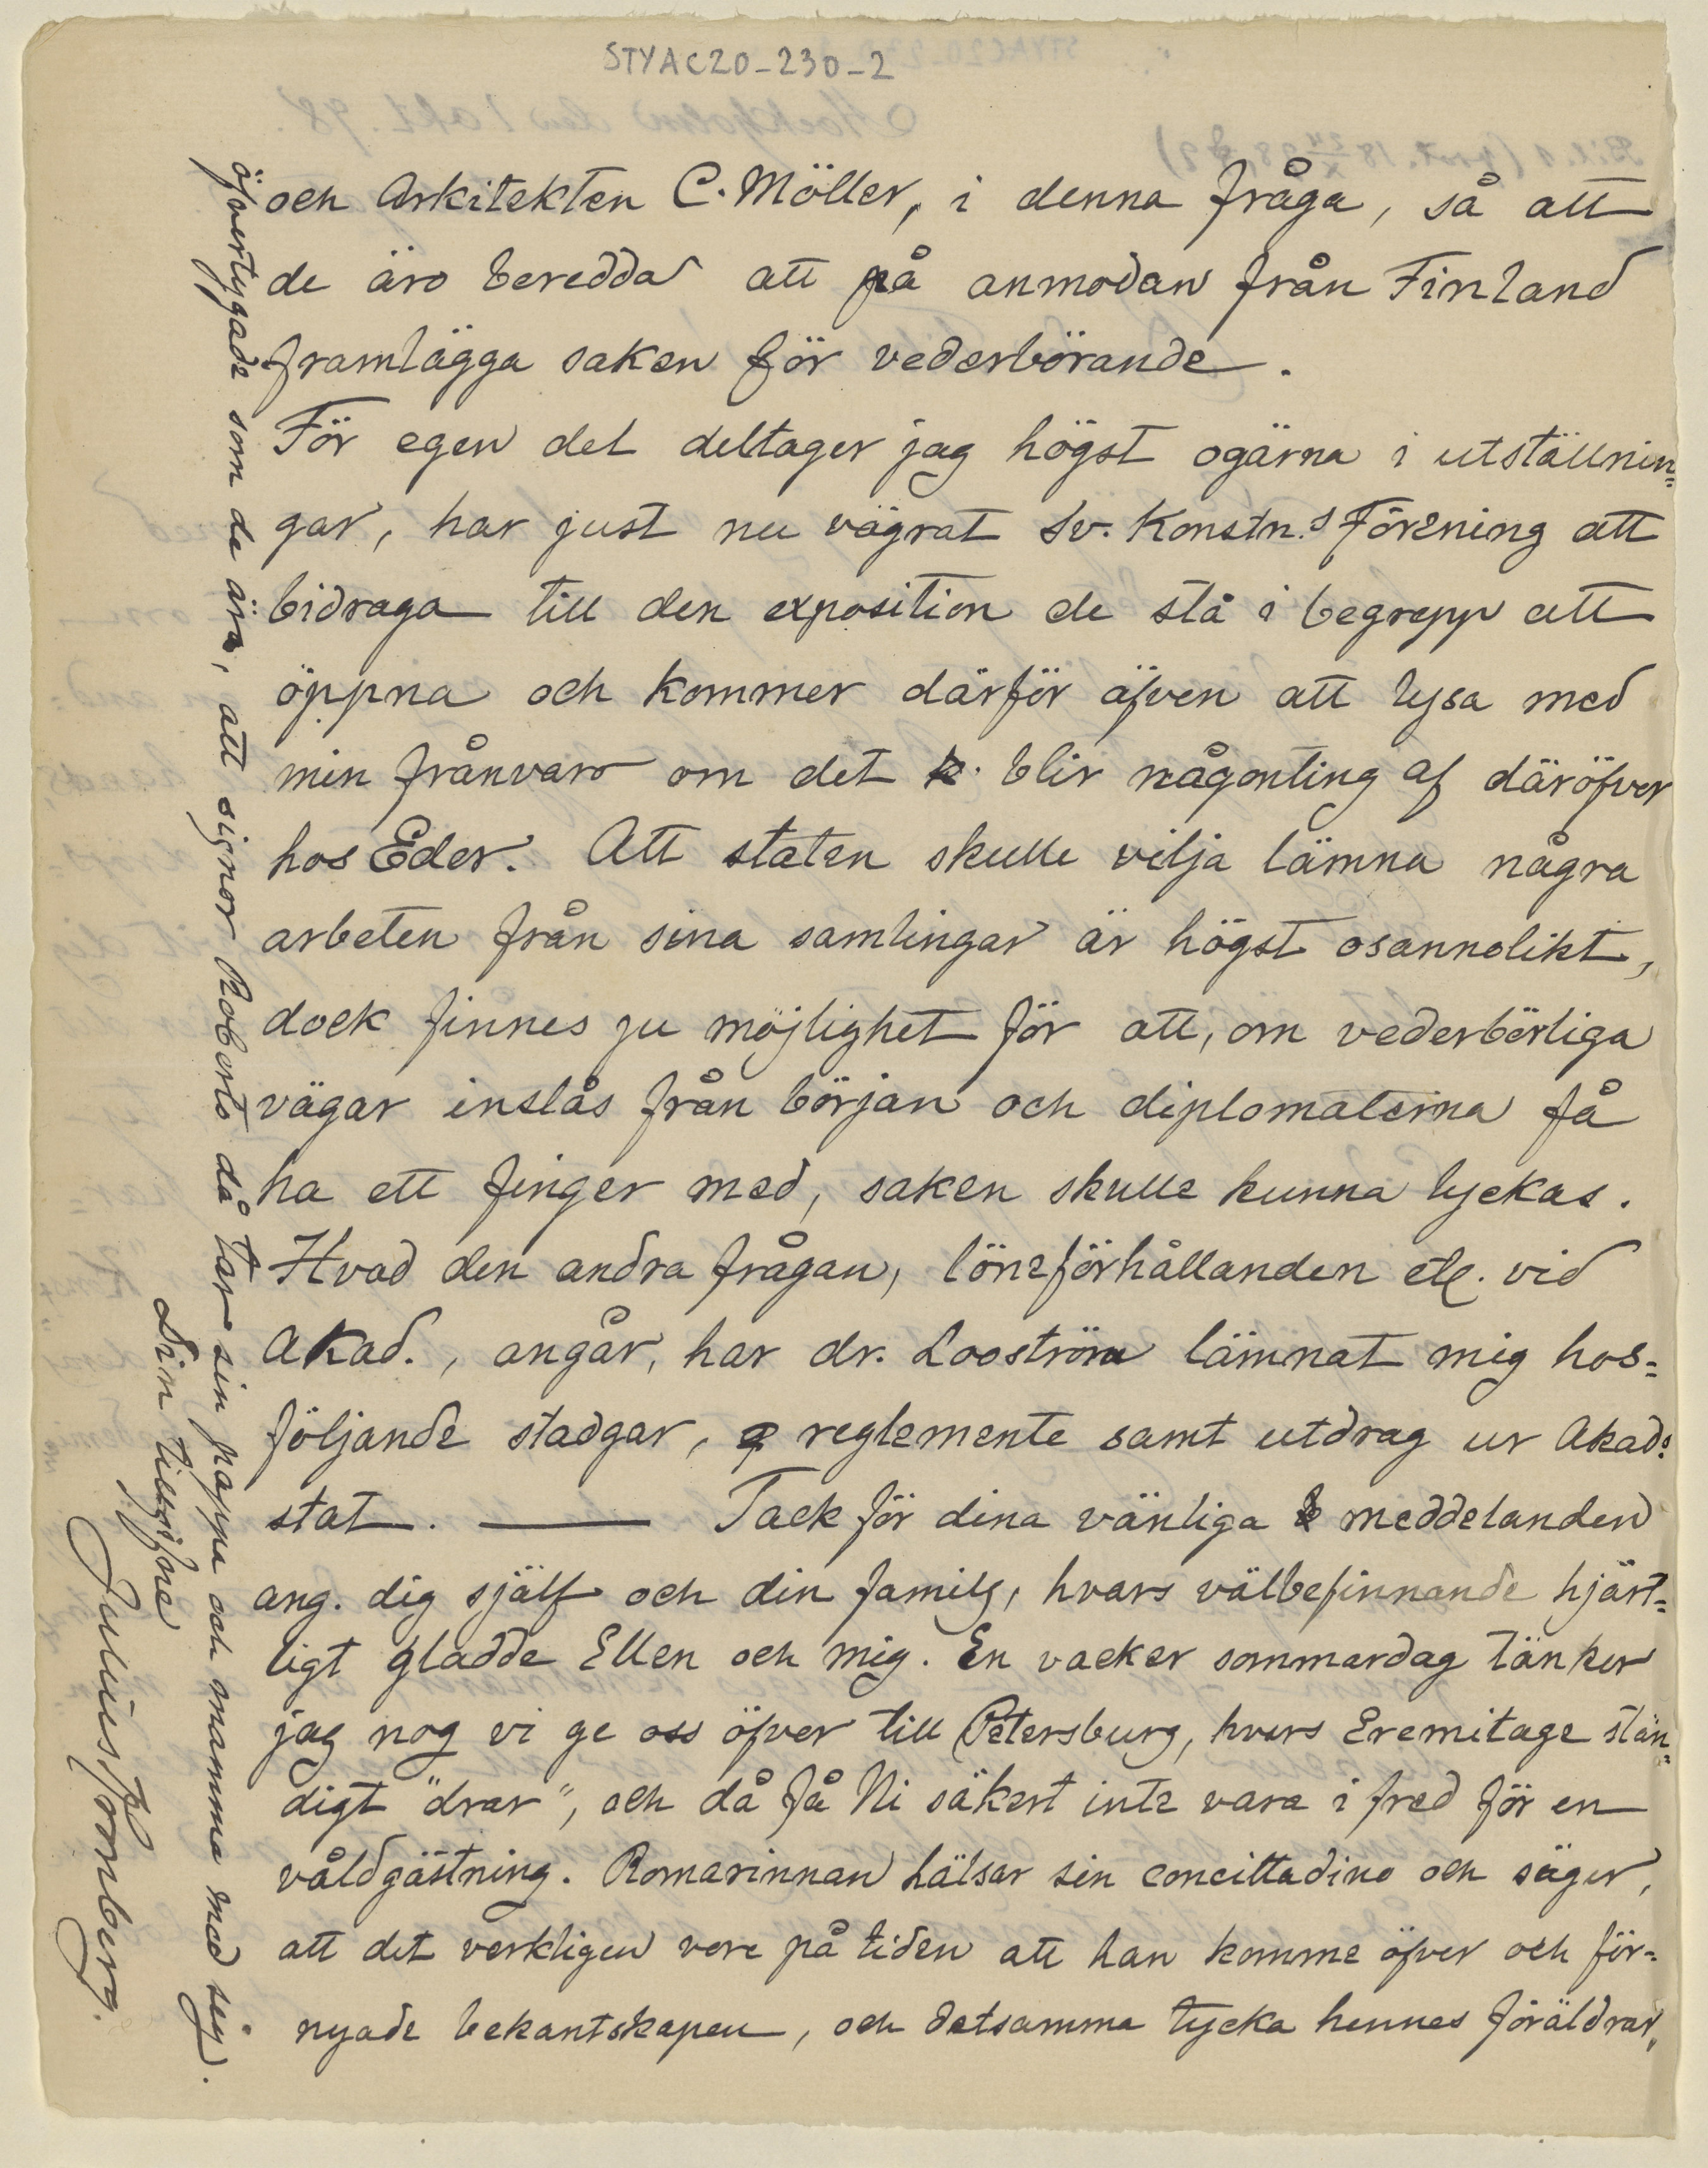 STYAC20-230-2
och Arkitekten C. Möller, i denna fråga, så att
de äro beredda att på anmodan från Finland
framlägga saken för vederbörande.
För egen del deltager jag högst ogärna i utställnin=
gar, har just nu vägrat Sv. Konstn.s Förening att
bidraga till den exposition de stå i begrepp att
öppna och kommer därför äfven att lysa med
min frånvaro om det blir någonting af däröfver
hos Eder. Att staten skulle vilja lämna några
arbeten från sina samlingar är högst osannolikt,
dock finnes ju möjlighet för att, om vederbörliga
vägar inslås från början och diplomaterna få
ha ett finger med, saken skulle kunna lyckas.
Hvad den andra frågan, löneförhållanden etc. vid
Akad., angår, har dr. Looström lämnat mig hos=
följande stadgar, reglemente samt utdrag ur Akads
stat. — Tack för dina vänliga meddelanden
ang. dig själf och din familj, hvars välbefinnande hjärt=
ligt gladde Ellen och mig. En vacker sommardag tänker
jag nog vi ge oss öfver till Petersburg, hvars Eremitage stän=
digt "drar", och då få Ni säkert inte vara i fred för en
våldgästning. Romarinnan hälsar sin concittadino och säger,
att det verkligen vore på tiden att han komme öfver och för=
nyade bekantskapen, och detsamma tycka hennes föräldrar,
öfvertygade som de äro, att signor Roberto då tar sin pappa och mamma med sig.
Din tillgifne
Julius Kronberg.